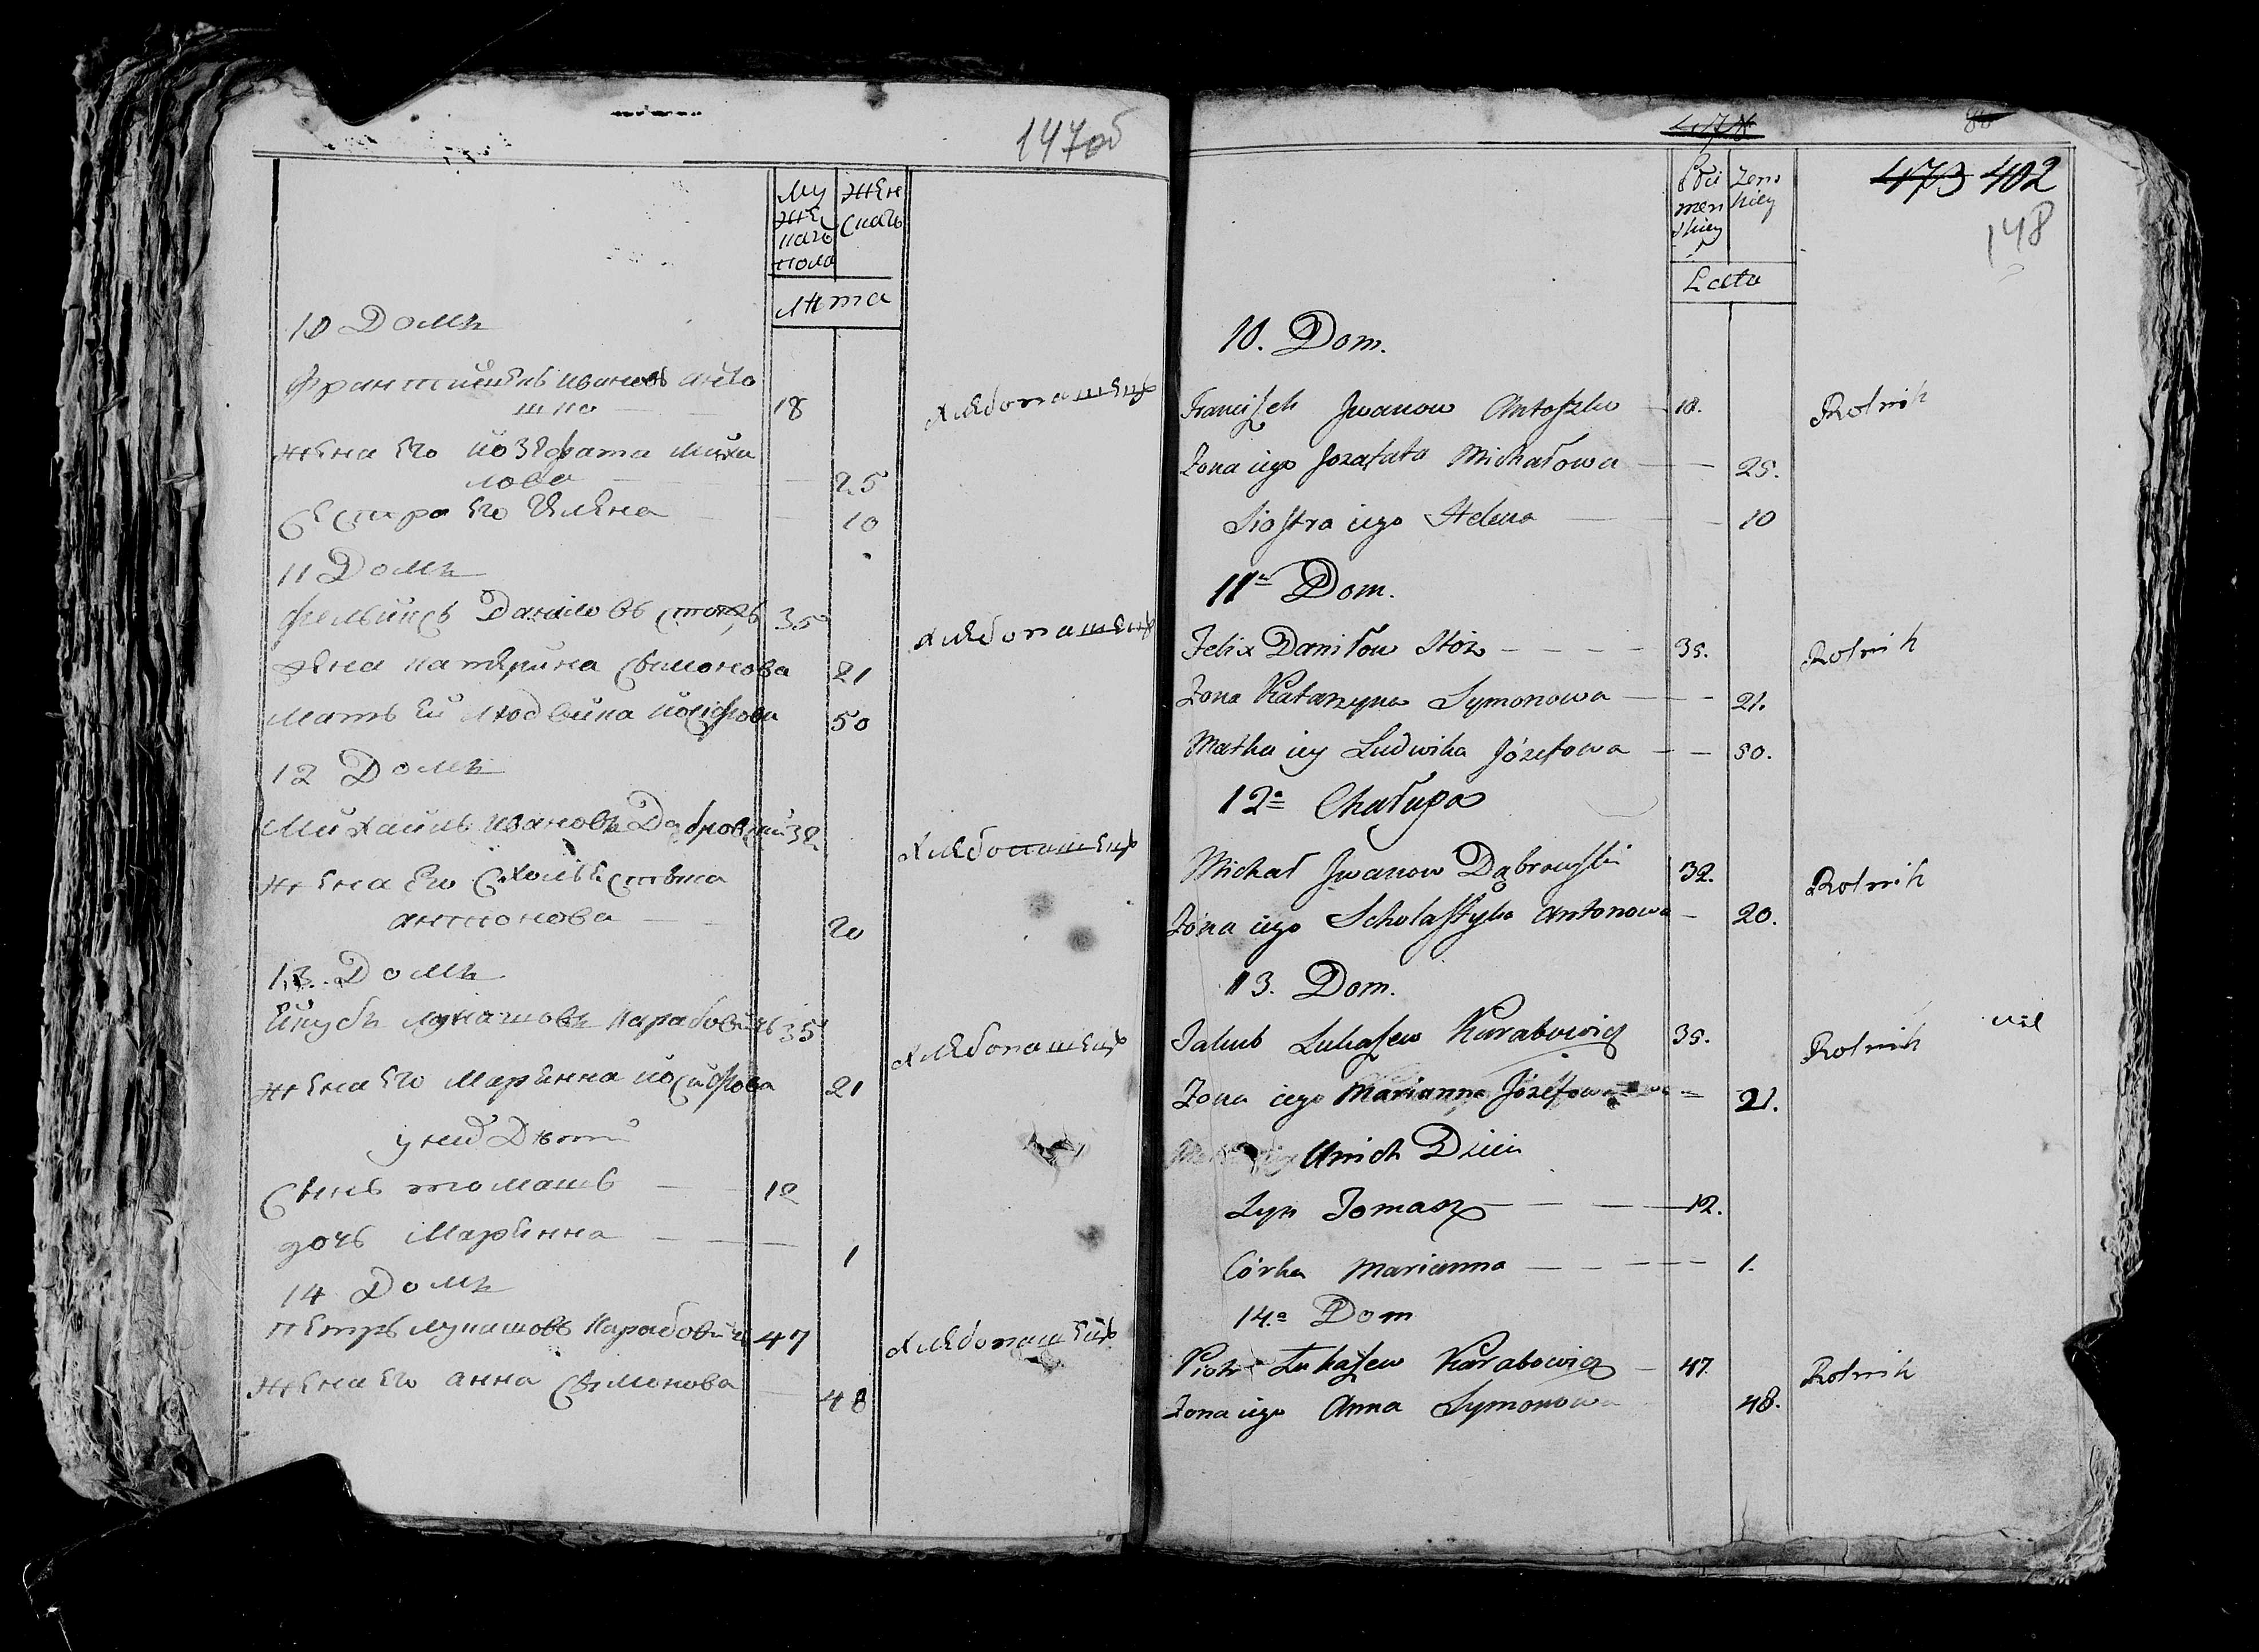 147об
Му жен
жес скаго
каго
пола
Лѣта
10 Домъ
Францишекъ Ивановъ Анто
шко 18 хлебопашецъ
жена его Йозефата Миха
лова 25
Сестра его Гелена 10
11 Домъ
Феликсъ Даниловъ Стожъ 35 хлебопашецъ
жена Катерина Сымонова 21
Мать ей Людвика Йосифова 50
12 Домъ
Михаилъ Ивановъ Домбровский 32 хлебопашецъ
жена его Схоластыка
Антонова 20
13. Домъ
Якубъ Лукашовъ Карабовичъ 35 хлебопашецъ
жена его Марыанна Йосифова 21
у них Дѣти
Сынъ Томашъ 12
дочь Марыанна 1
14 Домъ
Петръ Лукашовъ Карабовичъ 47 хлебопашецъ
жена его Анна Сымонова 48
473 402
148
Płci Zens
męs kiey
skiey
Lata
10. Dom.
Franciszek Jwanow Antoszko 18. Rolnik
Zona iego Jozafata Michałowa 25.
Siostra iego Helena 10
11. Dom.
Felix Daniłow Stoz 35. Rolnik
Zona Katarzyna Symonowa 21.
Matka iey Ludwika Józefowa 50.
12. Chałupa
Michał Jwanow Dąbrowski 32. Rolnik
Zona iego Scholastyka Antonowa 20.
13. Dom.
Jakub Lukaszew Karabowicz 35. Rolnik
Zona iego Marianna Józefowa 21.
U nich Dzieci
Syn Tomasz 12.
Córka Marianna 1.
14. Dom
Piotr Łukaszew Karabowicz 47. Rolnik
Zona iego Anna Symonowa 48.